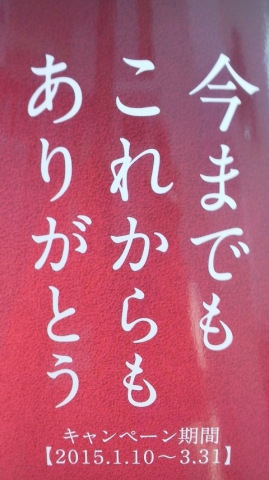 今までも
これからも
ありがとう
キャンペーン期間
【2015.1.10～3.31】